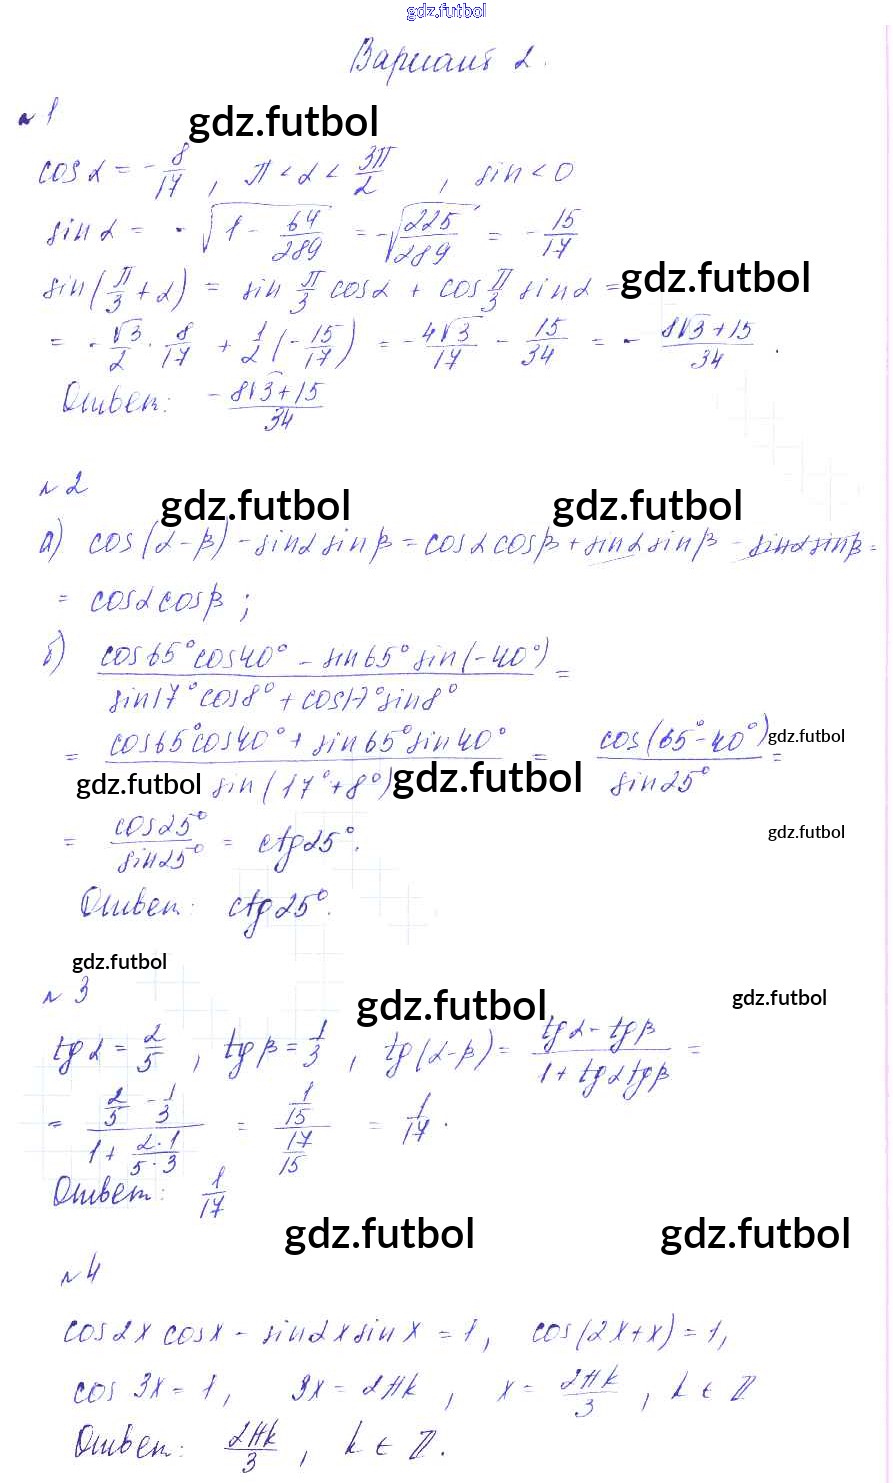 gdz.futbol
Вариант 2.
№1 gdz.futbol
cos α = -8/17, π < α < 3π/2, sin < 0
sin α = -√(1 - 64/289) = -√(225/289) = -15/17
sin(π/3 + α) = sin π/3 cos α + cos π/3 sin α = gdz.futbol
= -√3/2 · 8/17 + 1/2 (-15/17) = -4√3/17 - 15/34 = -(8√3+15)/34.
Ответ: -(8√3+15)/34
№2
gdz.futbol gdz.futbol
а) cos(α-β) - sinα sinβ = cosα cosβ + sinα sinβ - sinα sinβ =
= cosα cosβ;
б) (cos65° cos40° - sin65° sin(-40°))/(sin17° cos8° + cos17° sin8°) =
= (cos65° cos40° + sin65° sin40°)/(sin(17°+8°)) = cos(65°-40°)/sin25° = gdz.futbol
gdz.futbol gdz.futbol
= cos25°/sin25° = ctg25°. gdz.futbol
Ответ: ctg25°.
gdz.futbol
№3 gdz.futbol gdz.futbol
tgα = 2/5, tgβ = 1/3, tg(α-β) = (tgα - tgβ)/(1 + tgα tgβ) =
= (2/5 - 1/3)/(1 + (2·1)/(5·3)) = (1/15)/(17/15) = 1/17.
Ответ: 1/17
gdz.futbol gdz.futbol
№4
cos2x cosx - sin2x sinx = 1, cos(2x+x) = 1,
cos 3x = 1, 3x = 2πk, x = 2πk/3, k ∈ Z
Ответ: 2πk/3, k ∈ Z.